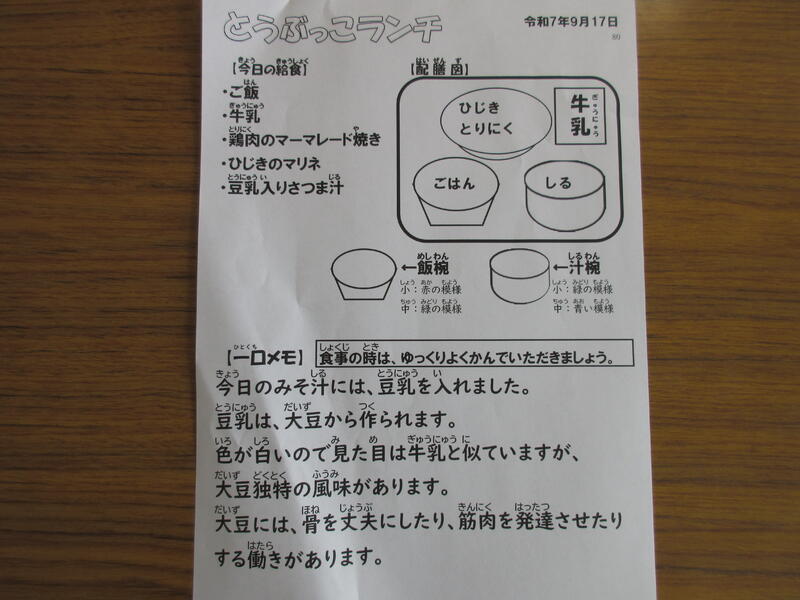 とうぶっこランチ
令和7年9月17日
80
【今日の給食】
・ご飯
・牛乳
・鶏肉のマーマレード焼き
・ひじきのマリネ
・豆乳入りさつま汁
【配膳図】
ひじき
とりにく
牛乳
ごはん
しる
←飯椀
小：赤の模様
中：緑の模様
←汁椀
小：緑の模様
中：青い模様
【一口メモ】
食事の時は、ゆっくりよくかんでいただきましょう。
今日のみそ汁には、豆乳を入れました。
豆乳は、大豆から作られます。
色が白いので見た目は牛乳と似ていますが、
大豆独特の風味があります。
大豆には、骨を丈夫にしたり、筋肉を発達させたり
する働きがあります。